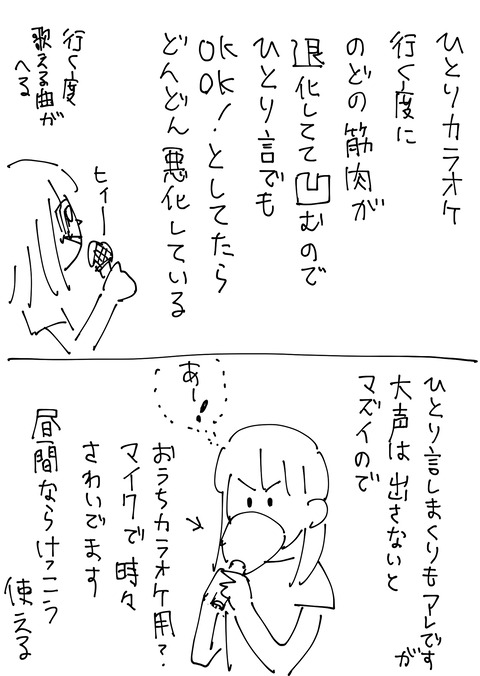 ひとりカラオケ
行く度に
のどの筋肉が
退化してて凹むので
ひとり言でも
OK
OK!としてたら
どんどん悪化している
行く度
歌える曲が
へる
ヒィー
ひとり言しまくりもアレですが
大声は出さないと
マズイので
あー!
おうちカラオケ用?
マイクで時々
さわいでます
昼間ならけっこう
使える